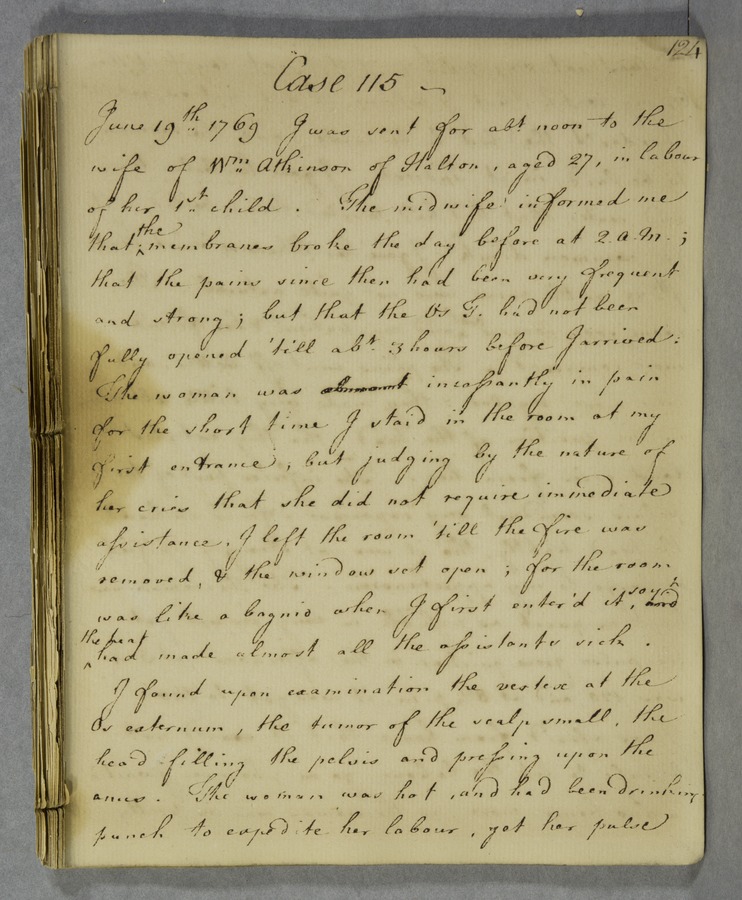 124
Case 115
June 19th 1769 I was sent for abt. noon to the
wife of Wm Atkinson of Halton, aged 27, in labour
of her 1st child. The midwife informed me
that the membranes broke the day before at 2. a.M.;
that the pains since then had been very frequent
and strong; but that the Os G. had not been
fully opened 'till abt. 3 hours before I arrived.
The woman was almost incessantly in pain
for the short time I staid in the room at my
first entrance; but judging by the nature of
her cries that she did not require immediate
assistance, I left the room 'till the fire was
removed, & the window set open; for the room
was like a bagnio when I first enter'd it,
the heat had made almost all the assistants sick.
I found upon examination the vertex at the
Os externum, the tumor of the scalp small, the
head filling the pelvis and pressing upon the
anus. The woman was hot, and had been drinking
punch to expedite her labour, yet her pulse